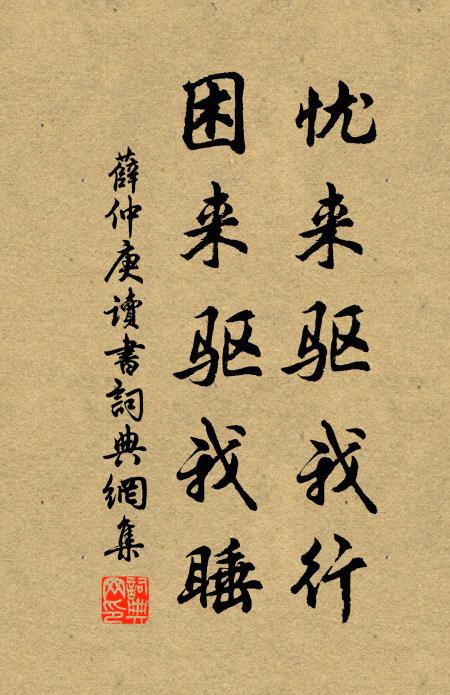 忧来驱我行
困来驱我睡
薛仲庚读書詞典網集
詞典网印